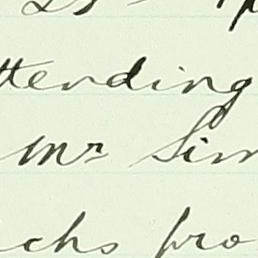 ttending
Mr Sim
chs pro